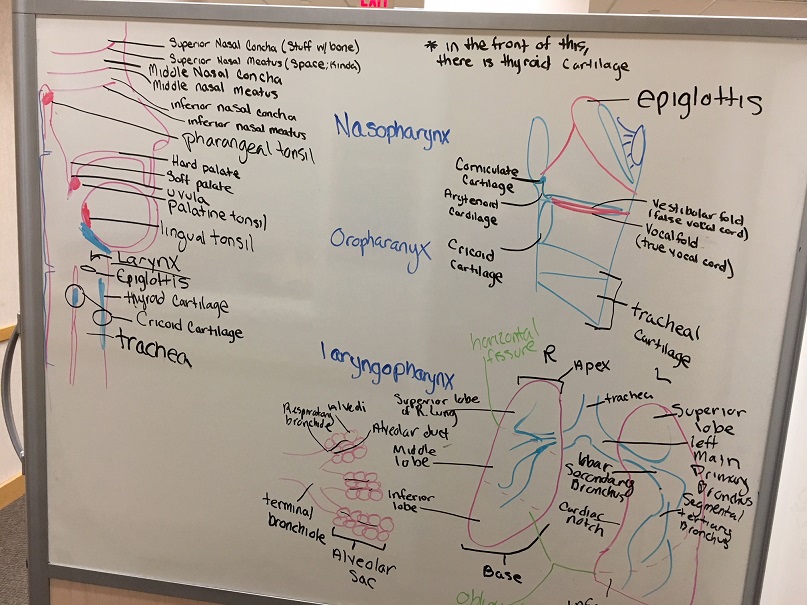 EXIT
Superior Nasal Concha (Stuff w/ bone)
Superior Nasal Meatus (Space; Kinda)
Middle Nasal Concha
Middle nasal meatus
inferior nasal concha
inferior nasal meatus
pharangeal tonsil
Hard palate
Soft palate
uvula
Palatine tonsil
lingual tonsil
Larynx
Epiglottis
thyroid Cartilage
Cricoid Cartilage
trachea
Nasopharynx
Oropharanyx
laryngopharynx
* in the front of this,
there is thyroid Cartilage
epiglottis
Corniculate
Cartilage
Arytenoid
Cardilage
Cricoid
Cartilage
Vestibular fold
(false vocal cord)
Vocal fold
(true vocal cord)
tracheal
Cartilage
Respiratory
bronchiole
alveoli
Alveolar duct
terminal
bronchiole
Alveolar
Sac
horizontal
fissure
R
Apex
Superior lobe
of R. Lung
Middle
lobe
Inferior
lobe
Base
L
trachea
Superior
lobe
left
Main
Primary
Bronchus
lobar
Secondary
Bronchus
Segmental
tertiary
Bronchus
Cardiac
notch